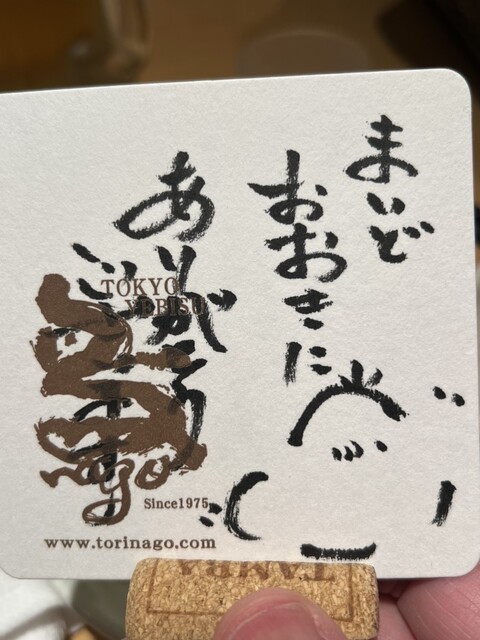 まいど
おおきに
ありがとう
ございます
TOKYO
YEBISU
nago
Since1975
www.torinago.com